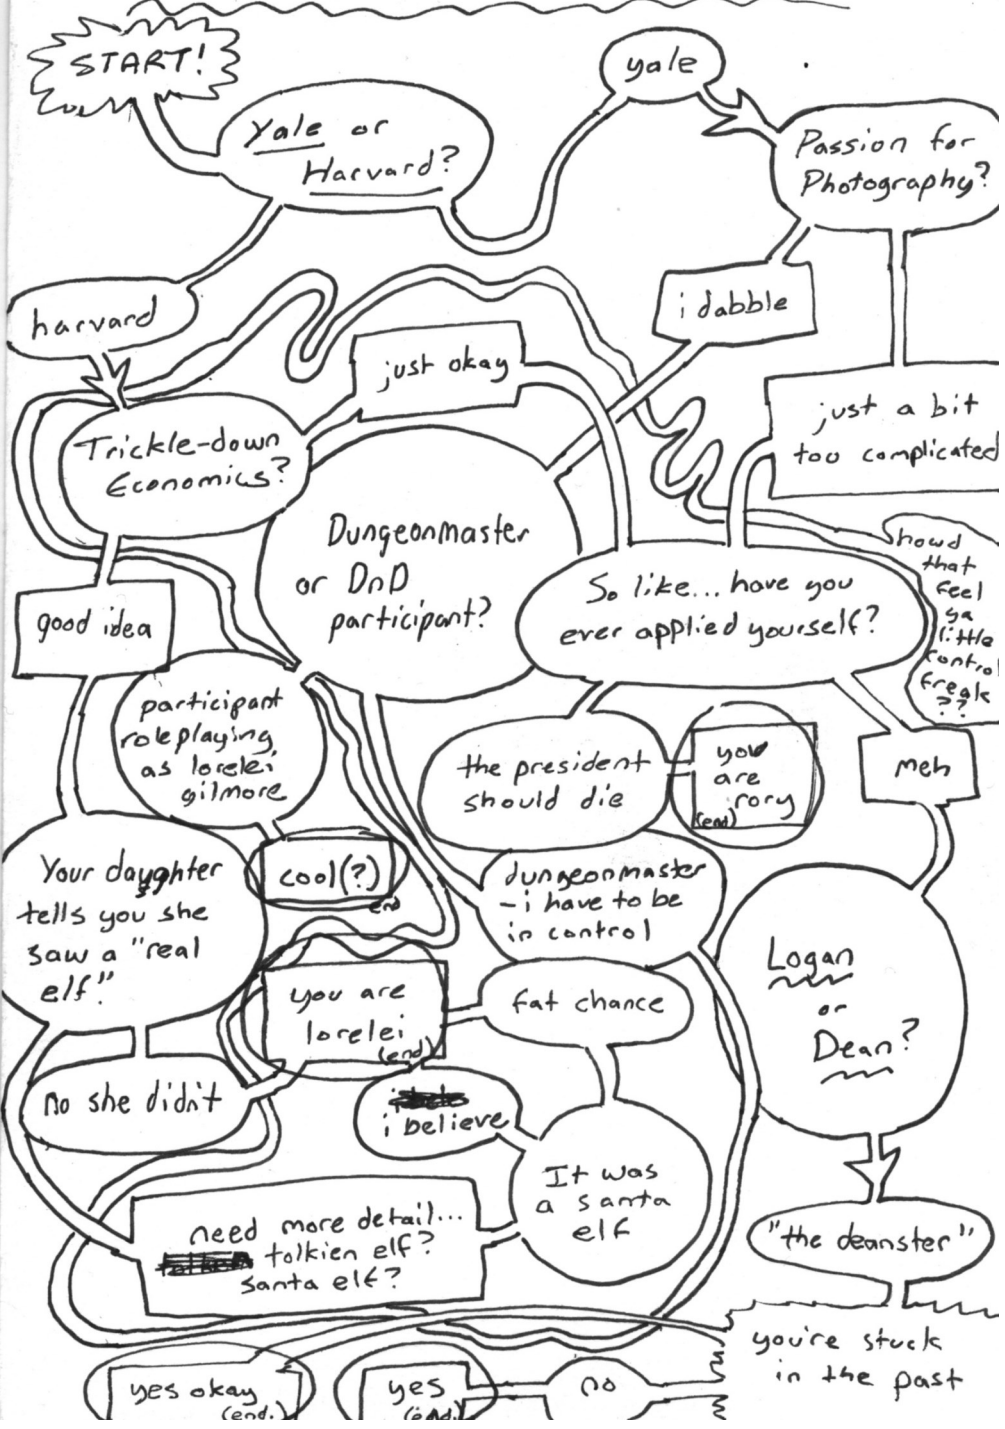 START!
Yale or
Harvard?
yale
Passion for
Photography?
harvard
i dabble
just okay
just a bit
too complicated
Trickle-down
Economics?
Dungeonmaster
or DnD
participant?
So like... have you
ever applied yourself?
howd
that
feel
ya
little
control
freak
??
good idea
participant
roleplaying
as lorelei
gilmore
the president
should die
you
are
rory
(end)
meh
Your daughter
tells you she
saw a "real
elf."
cool(?)
end
dungeonmaster
- i have to be
in control
Logan
or
Dean?
you are
lorelei
(end)
fat chance
No she didn't
i believe
It was
a santa
elf
need more detail...
tolkien elf?
santa elf?
"the deanster"
you're stuck
in the past
yes okay
(end.)
yes
(end.)
no